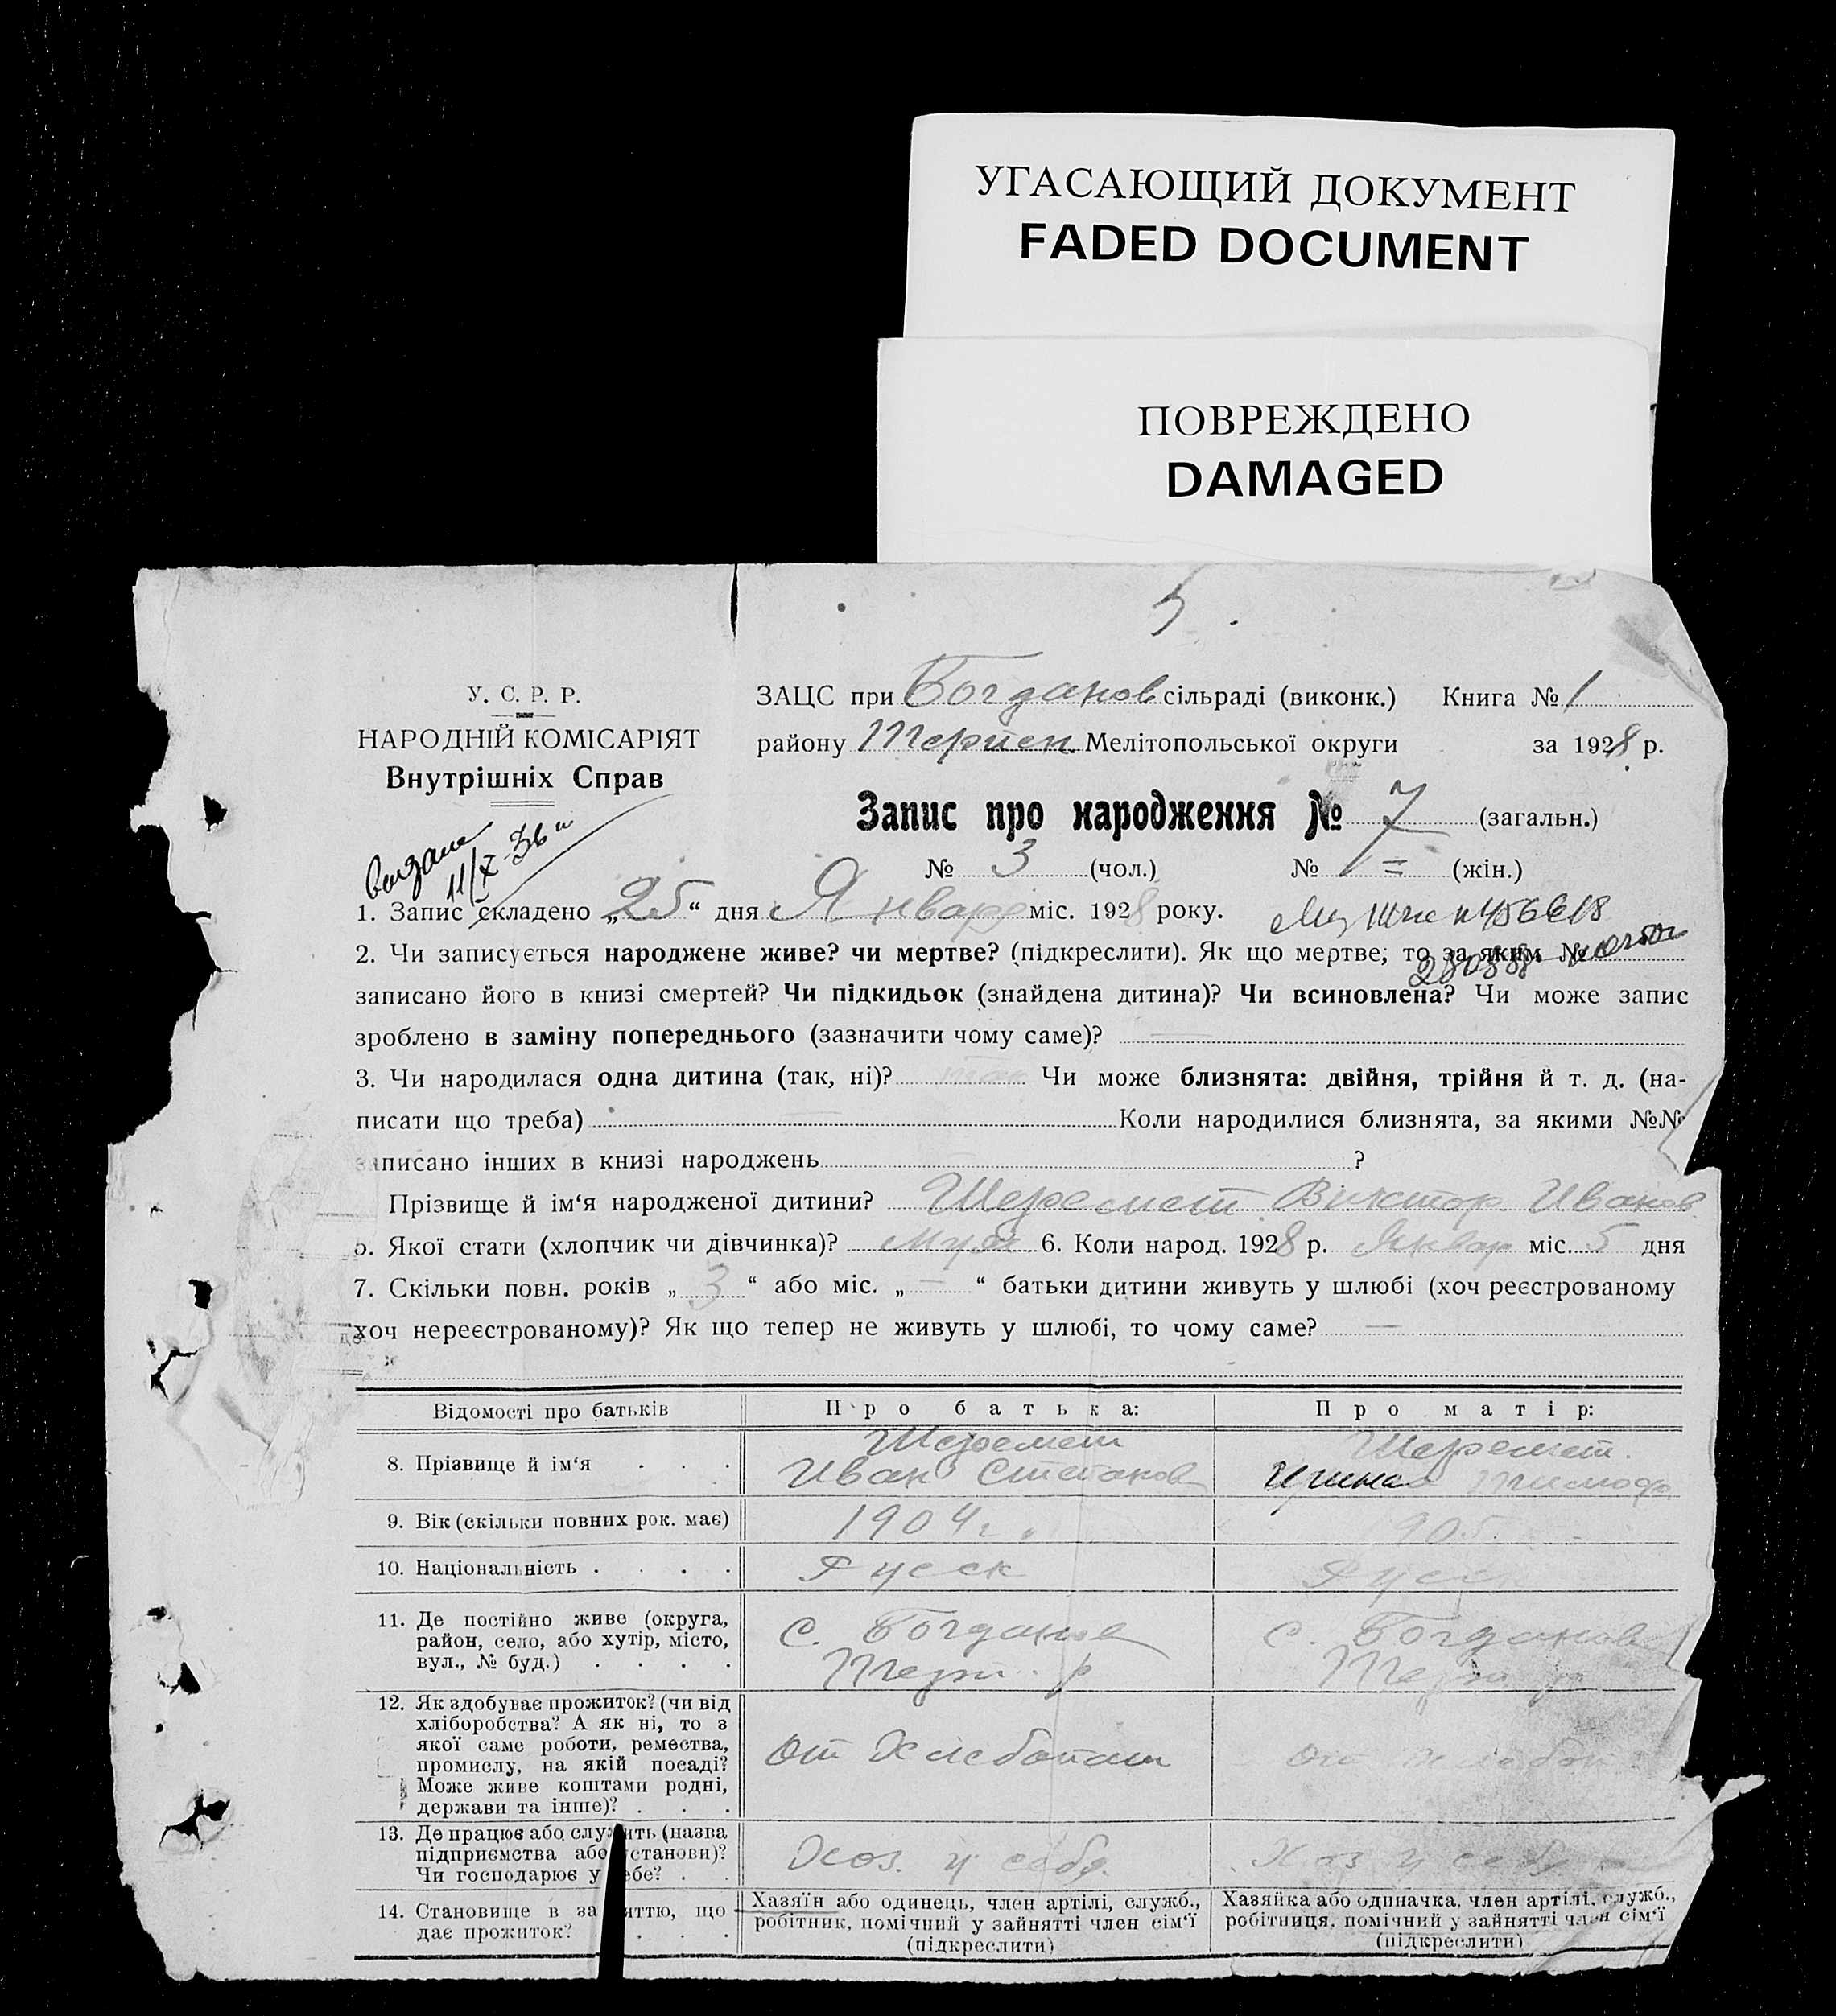 УГАСАЮЩИЙ ДОКУМЕНТ
FADED DOCUMENT
ПОВРЕЖДЕНО
DAMAGED
5.
У. С. Р. Р.
НАРОДНІЙ КОМІСАРІЯТ
Внутрішніх Справ
ЗАЦС при Богданов сільраді (виконк.) Книга № 1
району Терпен. Мелітопольської округи за 1928 р.
Запис про народження № 7 (загальн.)
№ 3 (чол.) № = (жін.)
11/X 36
1. Запис складено „25“ дня Января міс. 1928 року.
2. Чи записується народжене живе? чи мертве? (підкреслити). Як що мертве; то за яким №
записано його в книзі смертей? Чи підкидьок (знайдена дитина)? Чи всиновлена? Чи може запис
зроблено в заміну попереднього (зазначити чому саме)? —
3. Чи народилася одна дитина (так, ні)? так Чи може близнята: двійня, трійня й т. д. (на-
писати що треба) — Коли народилися близнята, за якими №№
записано інших в книзі народжень ?
Прізвище й ім‘я народженої дитини? Шеремет Виктор Иванов
5. Якої стати (хлопчик чи дівчинка)? муж 6. Коли народ. 1928 р. Январ міс. 5 дня
7. Скільки повн. років „3“ або міс. „—“ батьки дитини живуть у шлюбі (хоч реєстрованому
хоч нереєстрованому)? Як що тепер не живуть у шлюбі, то чому саме? —
Відомості про батьків Про батька: Про матір:
8. Прізвище й ім‘я . . . Шеремет Иван Степанов Шеремет. Ирина Тимоф
9. Вік (скільки повних рок. має) 1904 г. 905.
10. Національність . . . . Русск Русск
11. Де постійно живе (округа,
район, село, або хутір, місто,
вул., № буд.) . . . .
с. Богданов
Терп. р
с. Богданов
Терп р
12. Як здобуває прожиток? (чи від
хліборобства? А як ні, то з
якої саме роботи, ремества,
промислу, на якій посаді?
Може живе коштами родні,
держави та інше)? . . .
От Хлебопаш
От хлебоп
13. Де працює або служить (назва
підприємства або установи)?
Чи господарює у себе? . .
Хоз. у себя.
Хоз у себя
14. Становище в заняттю, що
дає прожиток? . . .
Хазяїн або одинець, член артілі, служб.,
робітник, помічний у зайнятті член сім‘ї
(підкреслити)
Хазяйка або одиначка, член артілі, служб.,
робітниця, помічний у зайнятті член сім‘ї
(підкреслити)